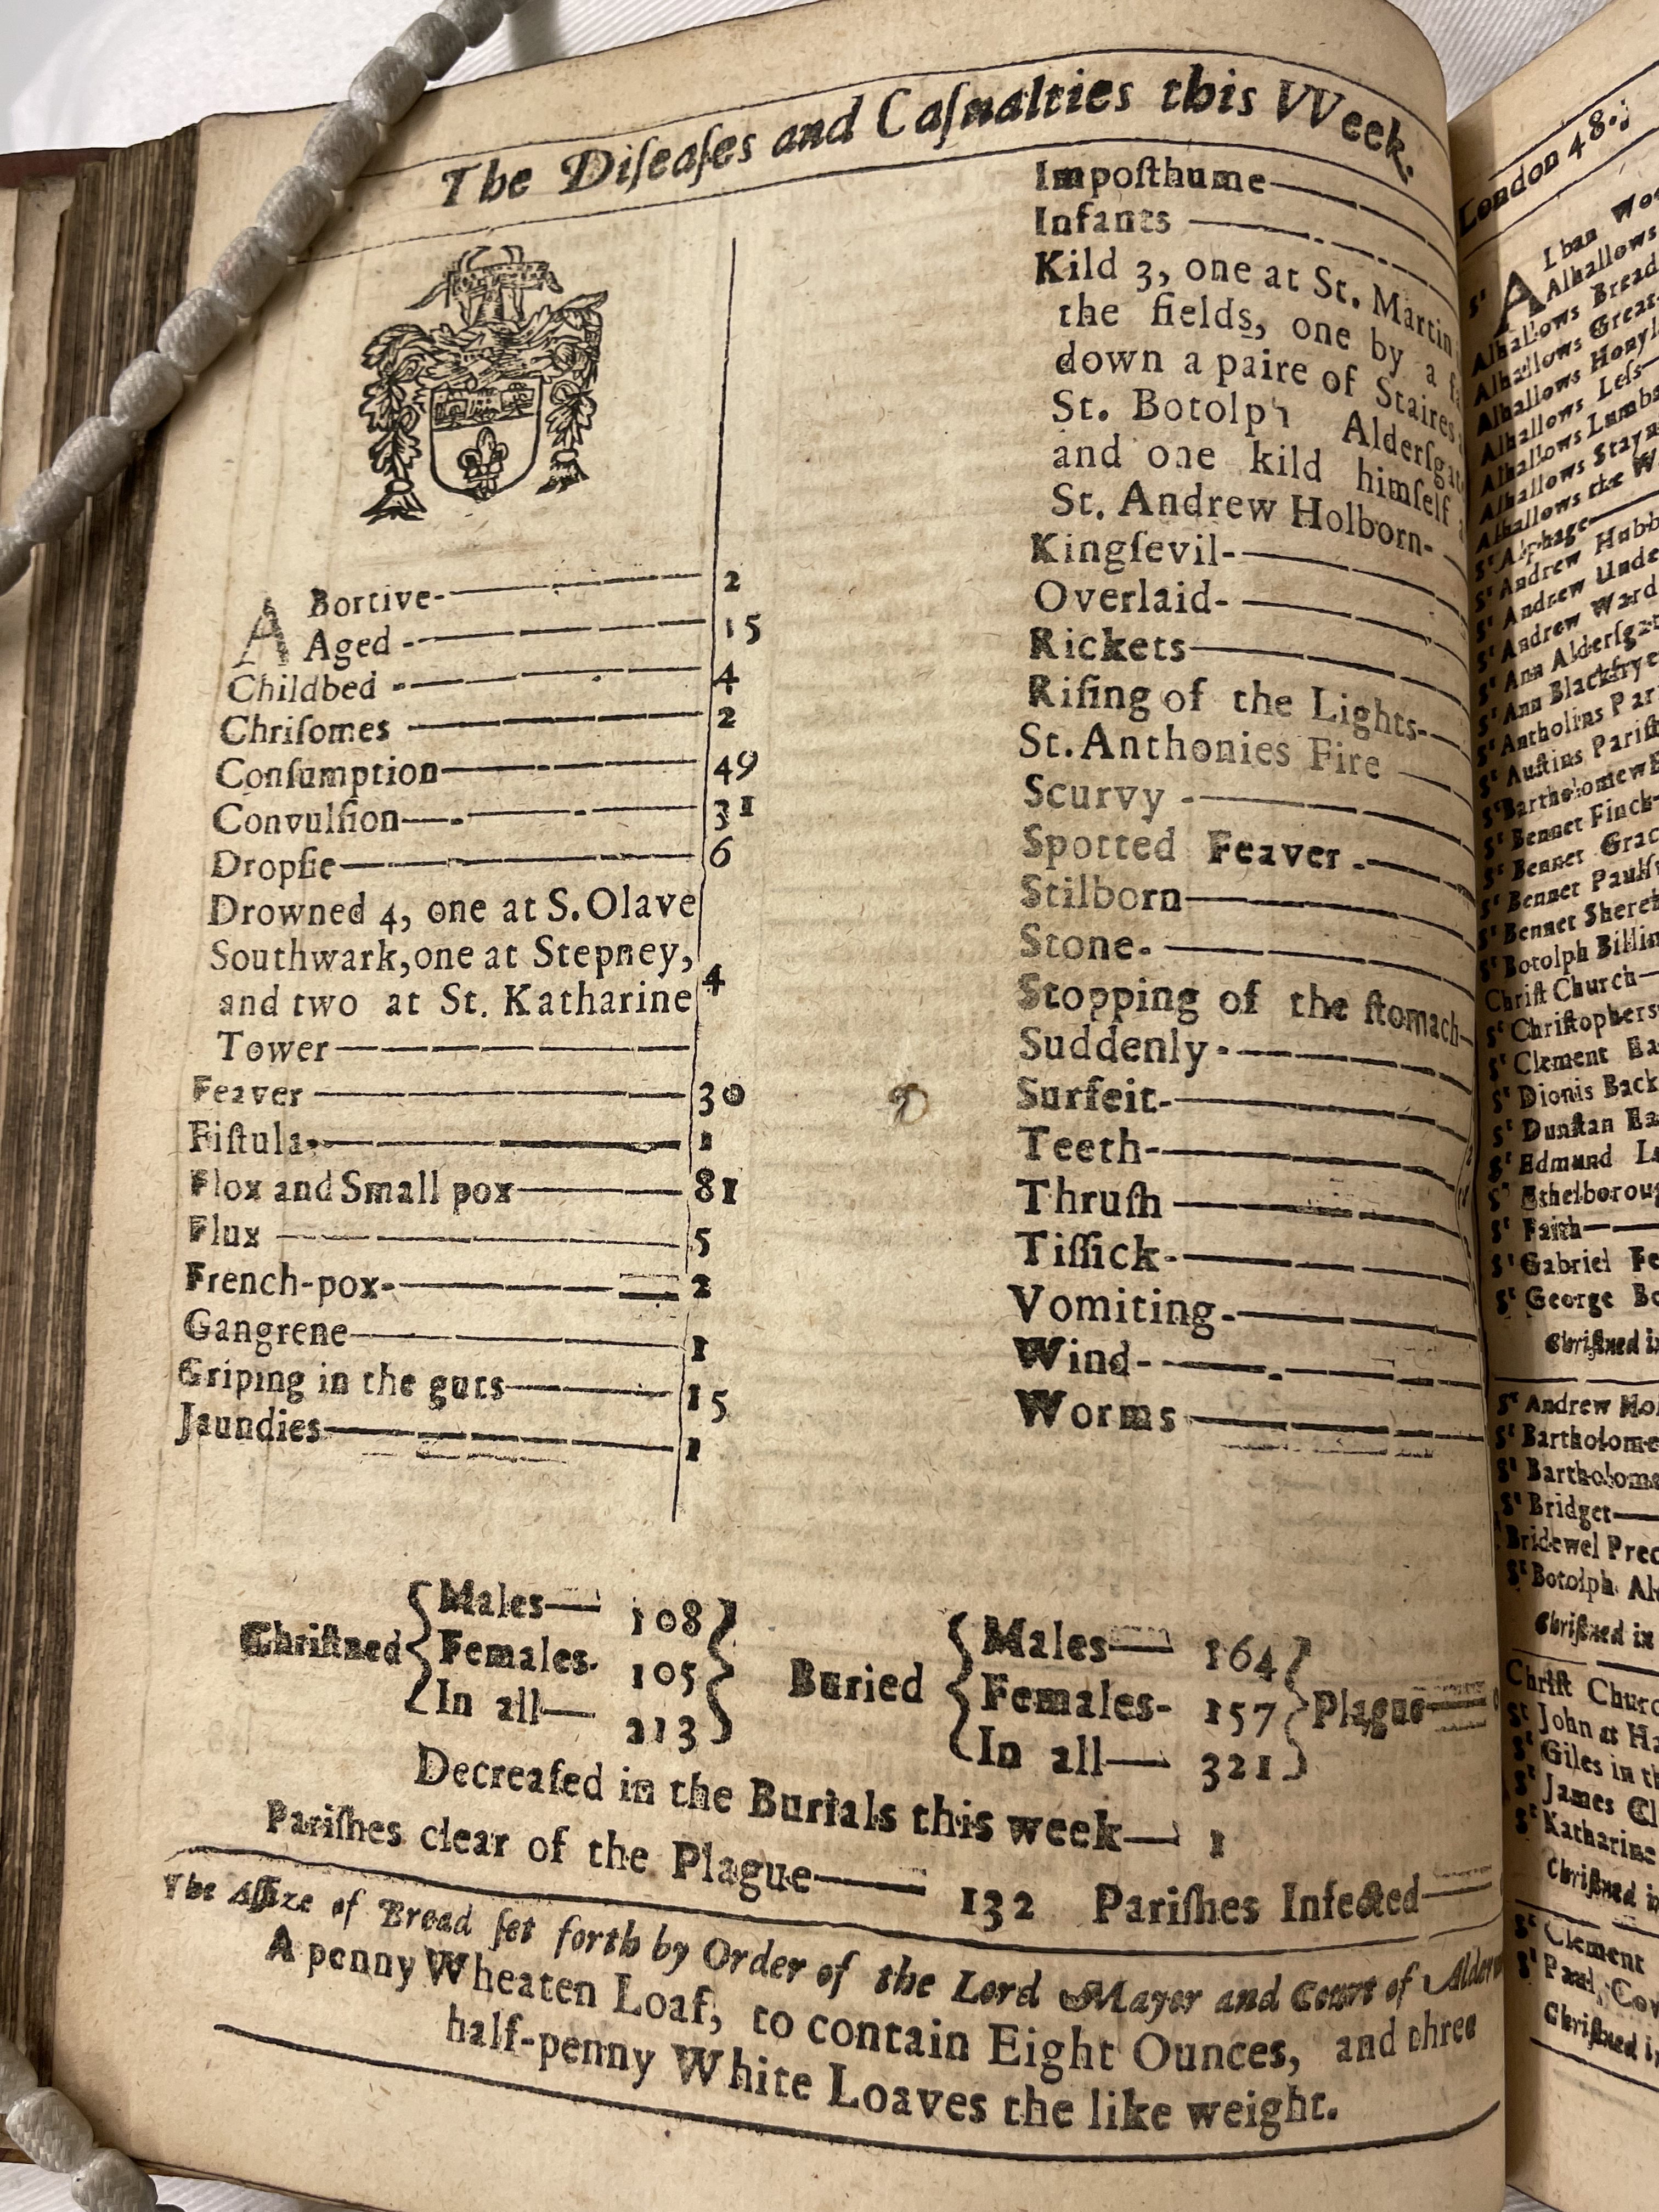 The Diſeaſes and Caſualties this VVeek.
ABortive 2
Aged 15
Childbed 4
Chriſomes 2
Conſumption 49
Convulſion 31
Dropſie 6
Drowned 4, one at S. Olave
Southwark, one at Stepney,
and two at St. Katharine
Tower 4
Feaver 30
Fiſtula 1
Flox and Small pox 81
Flux 5
French-pox 2
Gangrene 1
Griping in the guts 15
Jaundies 1
Impoſthume
Infants
Kild 3, one at St. Martin
the fields, one by a
down a paire of Staires
St. Botolph Alderſgat
and one kild himſelf
St. Andrew Holborn
Kingſevil
Overlaid
Rickets
Riſing of the Lights
St. Anthonies Fire
Scurvy
Spotted Feaver
Stilborn
Stone
Stopping of the ſtomach
Suddenly
Surfeit
Teeth
Thruſh
Tiſſick
Vomiting
Wind
Worms
Chriſtned
Males 108
Females 105
In all 213
Buried
Males 164
Females 157
In all 321
Plague
Decreaſed in the Burials this week 1
Pariſhes clear of the Plague 132 Pariſhes Infected
The Aſſize of Bread ſet forth by Order of the Lord Mayor and Court of Alder
A penny Wheaten Loaf, to contain Eight Ounces, and three
half-penny White Loaves the like weight.
London 48
Alhallows
Alhallows Bread
Alhallows Great
Alhallows Honyl
Alhallows Leſs
Alhallows Lumba
Alhallows Stayn
Alhallows the W
St Alphage
St Andrew Hubb
St Andrew Unde
St Andrew Ward
St Ann Alderſgat
St Ann Blackfrye
St Antholins Par
St Auſtins Pariſh
St Bartholomew E
St Bennet Finck
St Bennet Grac
St Bennet Paulſ
St Bennet Shereh
St Botolph Billin
Chriſt Church
St Chriſtophers
St Clement Ea
St Dionis Back
St Dunſtan Ea
St Edmund L
St Ethelborou
St Faith
St Gabriel Fe
St George Bo
Chriſtned i
St Andrew Hol
St Bartholome
St Bartholome
St Bridget
Bridewel Prec
St Botolph Al
Chriſtned in
Chriſt Churc
St John at Ha
St Giles in th
St James Cl
St Katharine
Chriſtned i
St Clement
St Paul, Cov
Chriſtned i